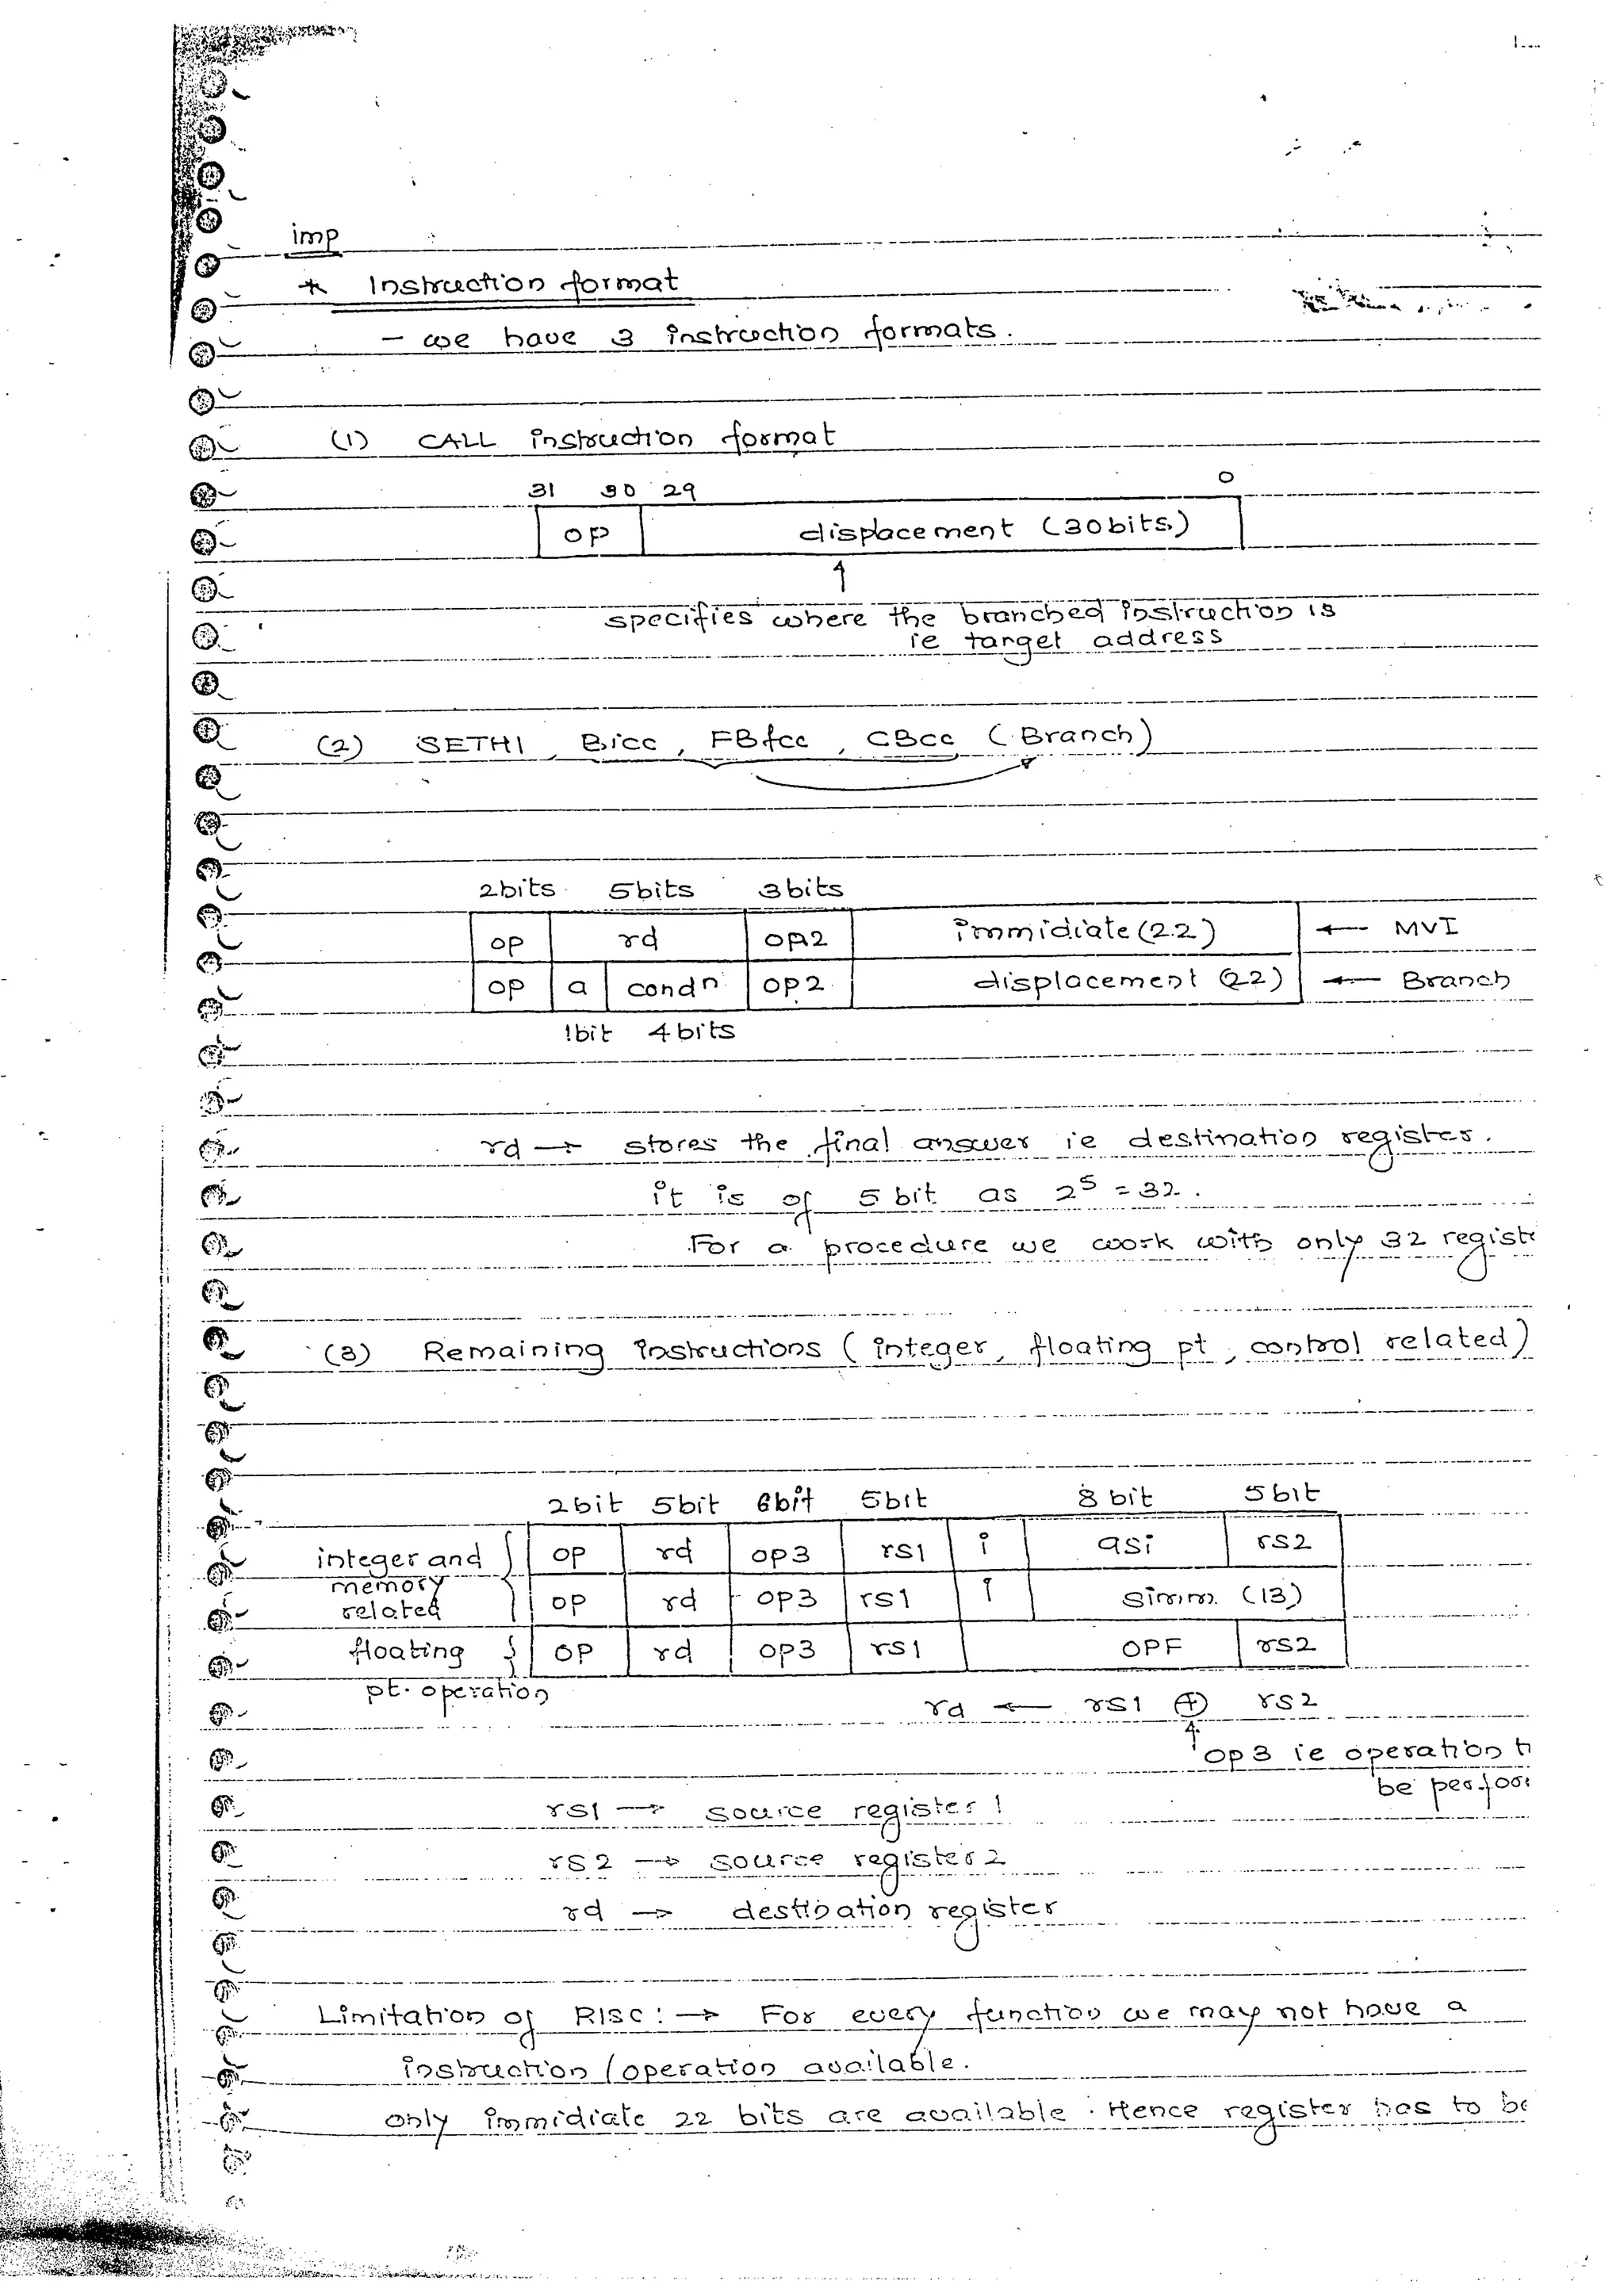 imp
* Instruction format
- we have 3 instruction formats.
(1) CALL instruction format
31 30 29 0
op displacement (30bits)
specifies where the branched instruction is
ie target address
(2) SETHI, Bicc, FBfcc, CBcc (Branch)
2bits 5bits 3bits
op rd op2 immidiate (22) ← MVI
op a condn op2 displacement (22) ← Branch
1bit 4bits
rd → stores the final answer ie destination register.
it is of 5 bit as 2⁵ = 32.
For a procedure we work with only 32 regist
(3) Remaining instructions (integer, floating pt, control related)
2bit 5bit 6bit 5bit 8 bit 5bit
integer and op rd op3 rs1 i asi rs2
memory
related op rd op3 rs1 i simm (13)
floating op rd op3 rs1 OPF rs2
pt. operation
rd ← rs1 ⊕ rs2
op3 ie operation t
be perfor
rs1 → source register 1
rs2 → source register 2
rd → destination register
Limitation of RISC: → For every function we may not have a
instruction / operation available.
only immidiate 22 bits are available. Hence register has to be